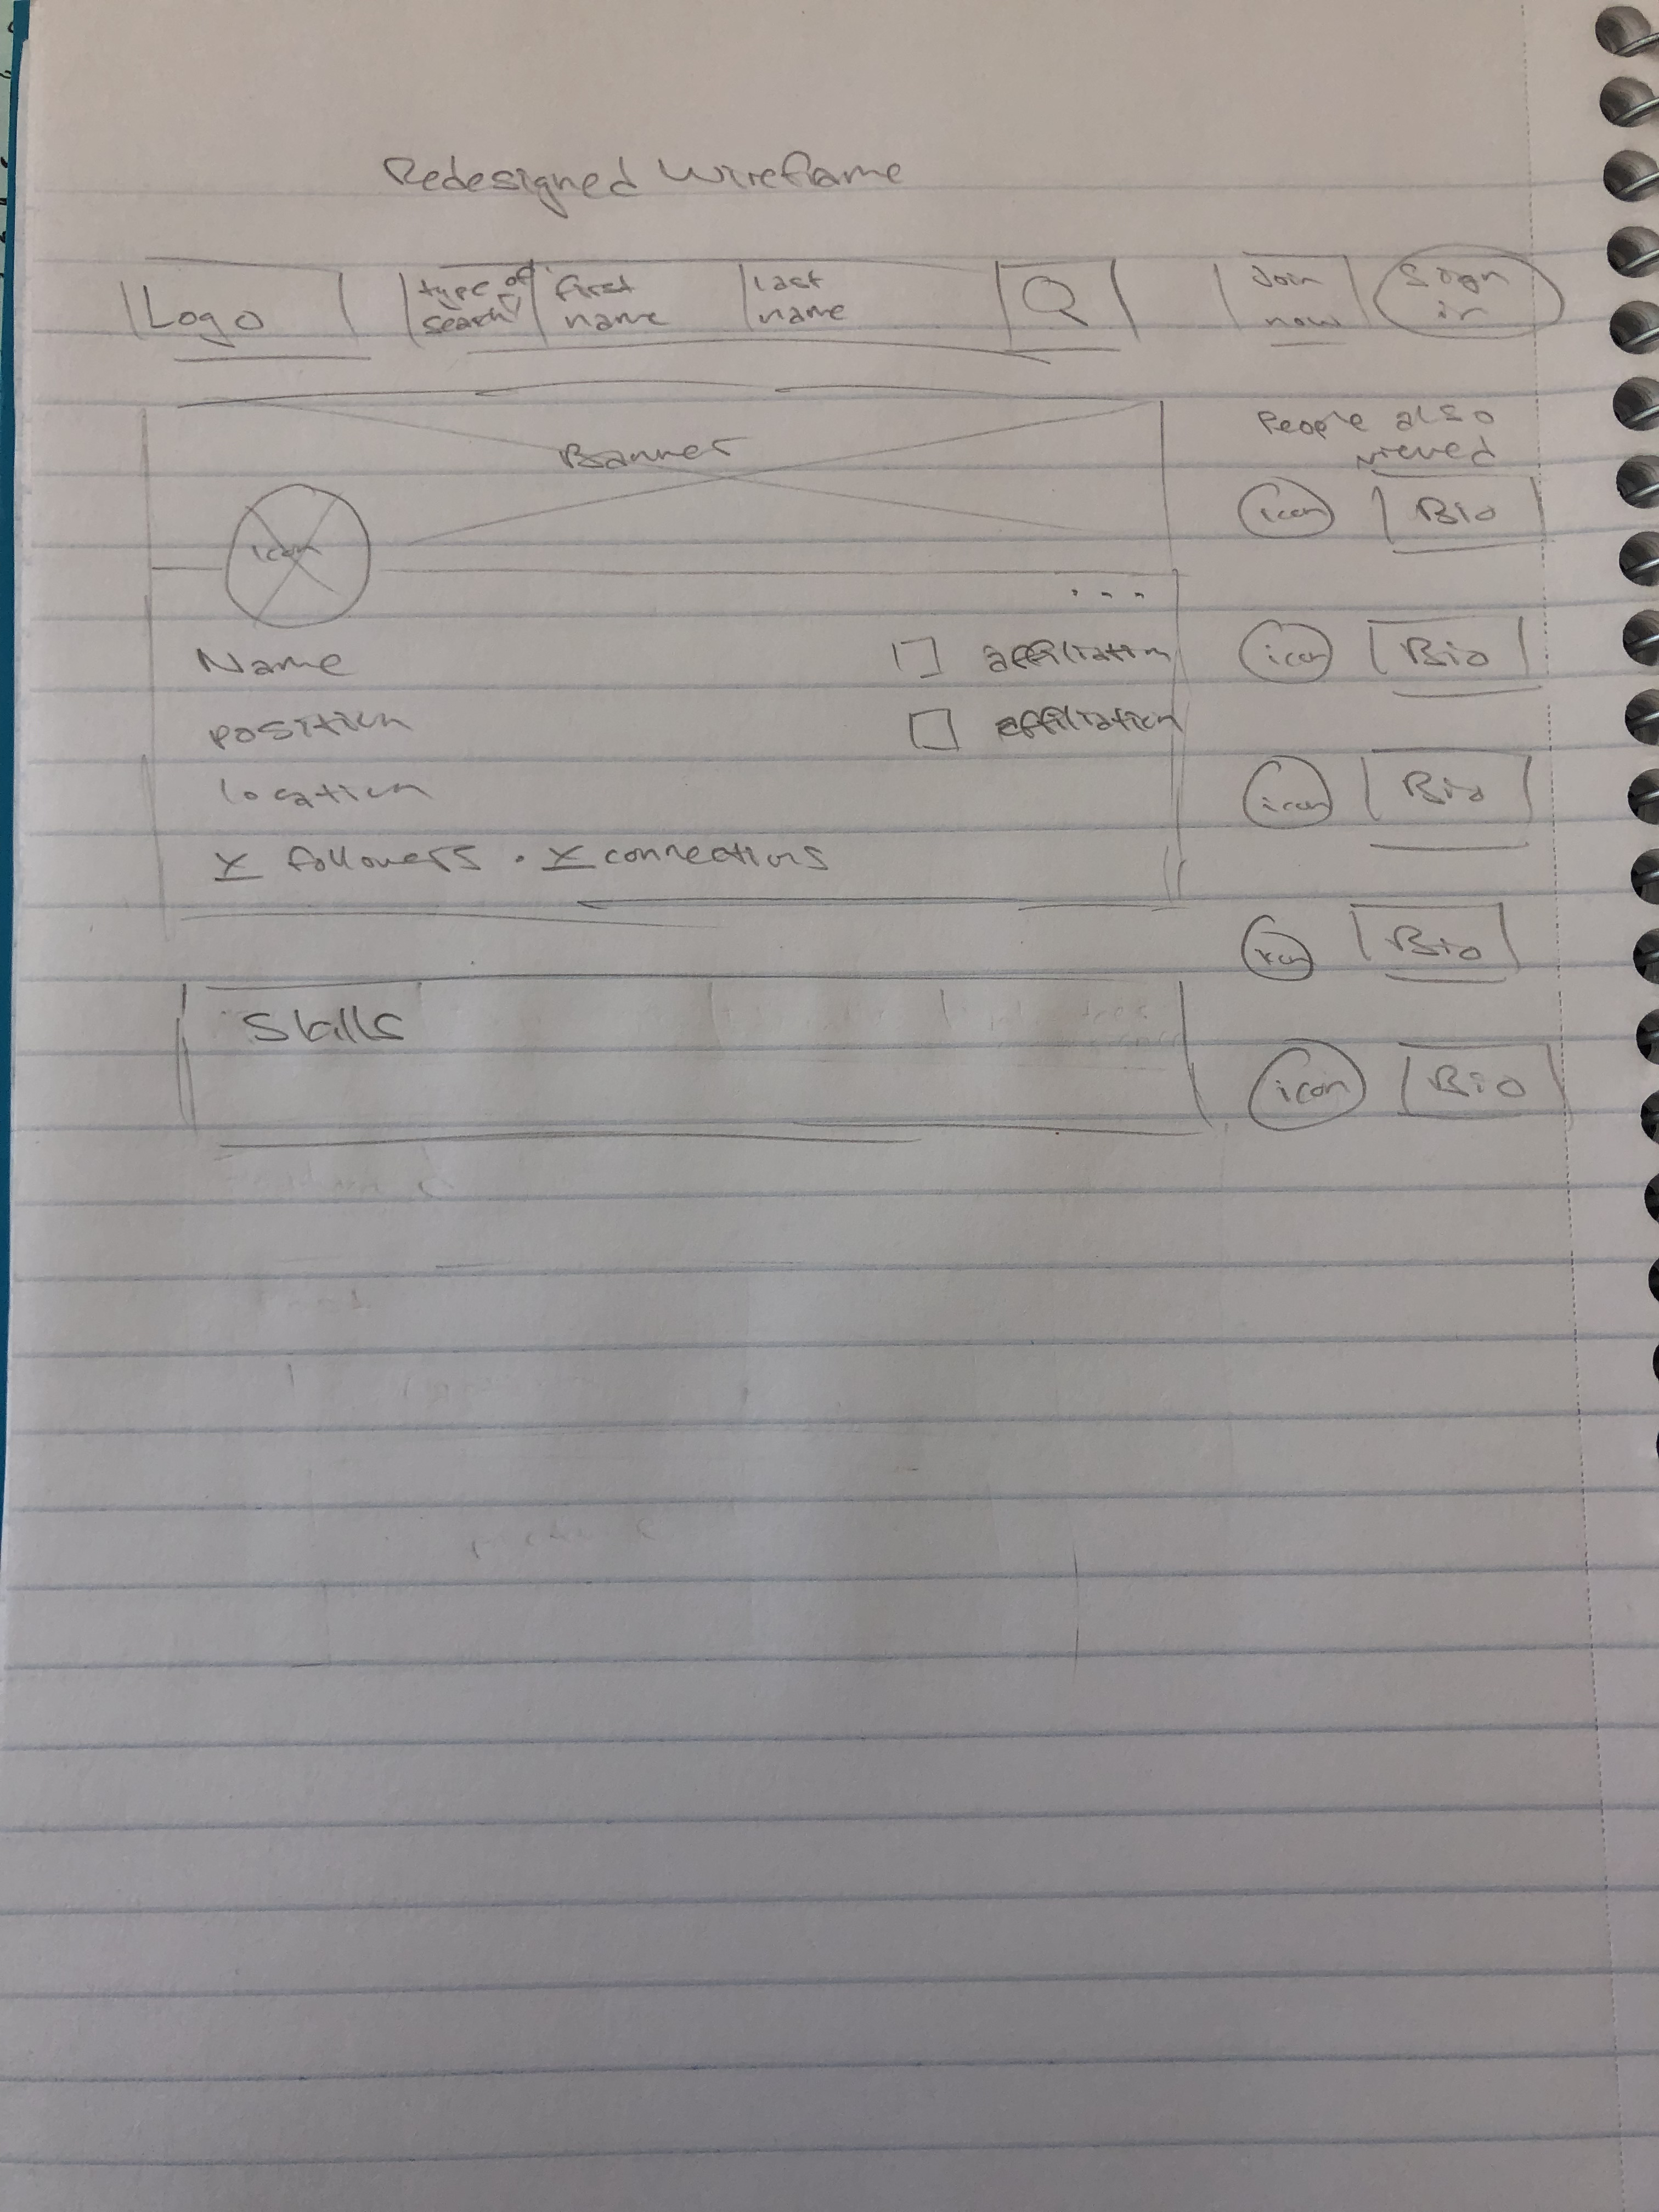 Redesigned Wireframe
Logo
type of
search
first
name
last
name
Join
now
Sign
in
Banner
icon
...
Name
position
location
x followers . x connections
affiliation
affiliation
People also
viewed
icon Bio
icon Bio
icon Bio
icon Bio
icon Bio
Skills